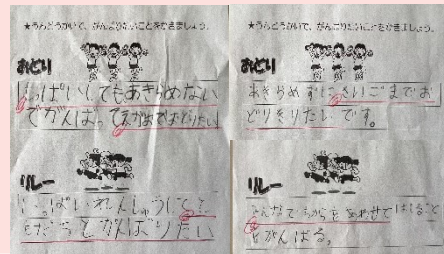 ★うんどうかいで、がんばりたいことをかきましょう。
おどり
しっぱいしてもあきらめない
でがんばってさいごまでおどりたい
リレー
いっぱいれんしゅうして
ともだちとがんばりたい
★うんどうかいで、がんばりたいことをかきましょう。
おどり
あきらめずにさいごまでお
どりきりたいです。
リレー
みんなでちからをあわせてはしること
をがんばる。